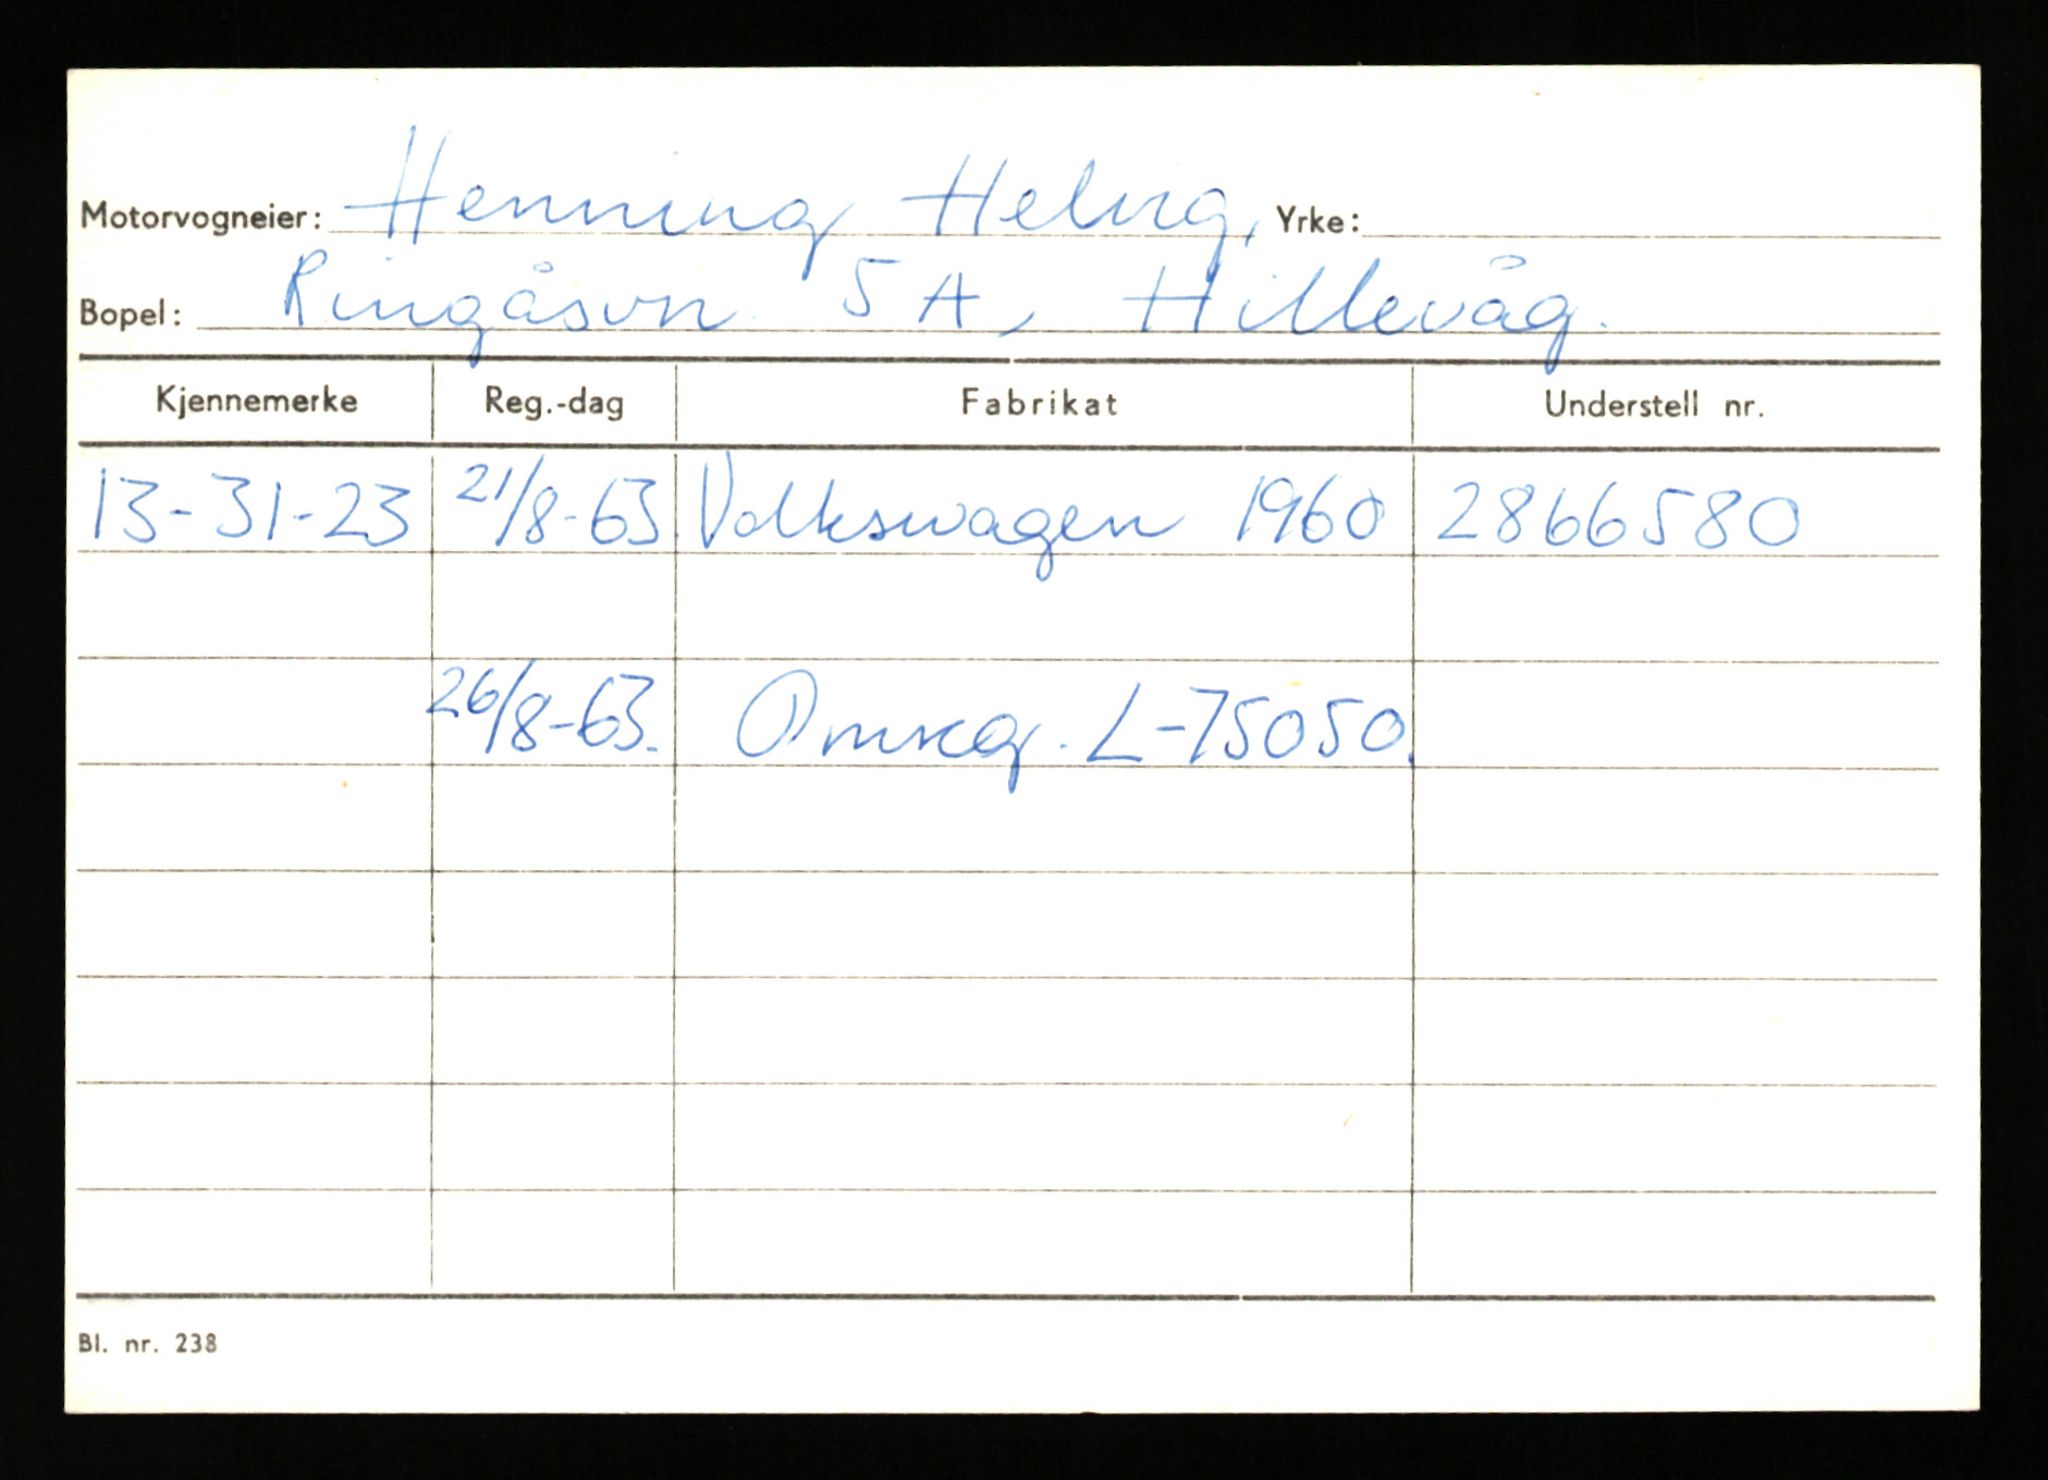 Motorvogneier: Henning Helvig, Yrke:
Bopel: Ringåsvn. 5 A, Hillevåg.
Kjennemerke Reg.-dag Fabrikat Understell nr.
13-31-23 21/8-63 Volkswagen 1960 2866580
26/8-63. Omreg. L-75050.
Bl. nr. 238